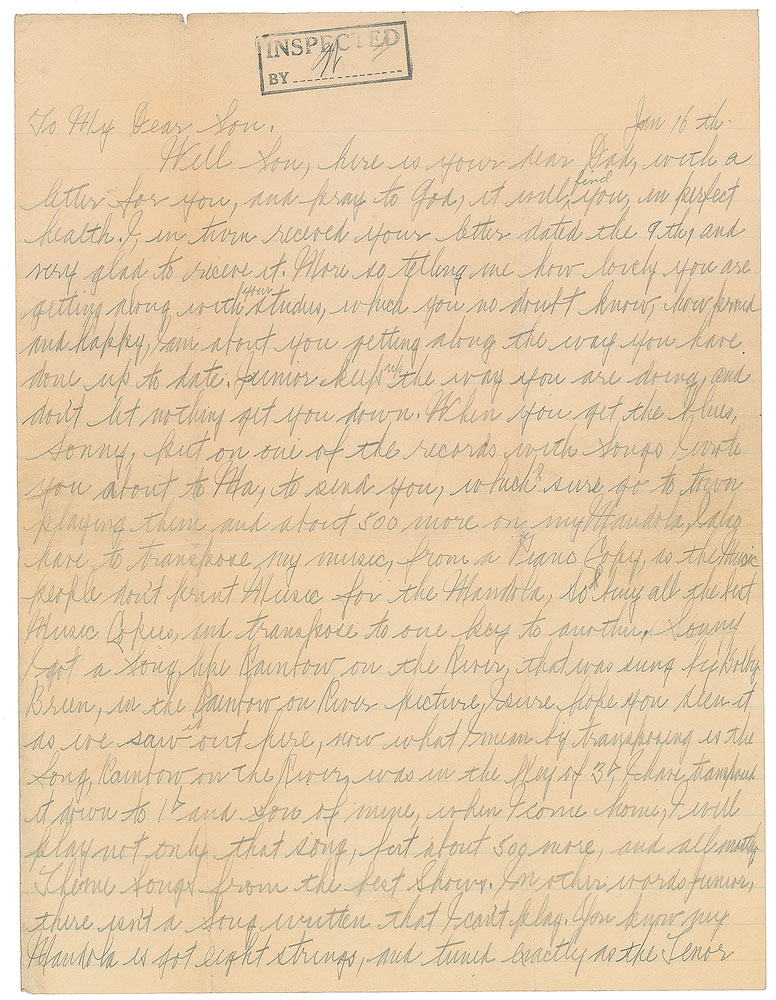 INSPECTED
BY
To My Dear Son. Jan 16 th.
Well Son, here is your dear Dad, with a
letter for you, and pray to God, it will find you, in perfect
health. I, in turn receved your letter dated the 9th, and
very glad to receve it. More so telling me how lovely you are
getting along with your studies, which you no doubt know, how proud
and happy, I am about you getting along the way you have
done up to date. Junior keep up the way you are doing, and
don't let nothing get you down. When you get the blues,
Sonny, put on one of the records with Songs I wrote
you about to Ma, to send you, which sure go to town
playing them and about 500 more on my Mandola, I also
have to transpose my music, from a Piano Copy, as the Music
people don't print Music for the Mandola, so I buy all the best
Music Copies, and transpose to one key to another. Sonny
I got a Song like Rainbow on the River, that was sung by Bobby
Breen, in the Rainbow on River picture, I sure hope you seen it
as we saw it out here, now what I mean by transposing is the
Song, Rainbow on the River, was in the Key of 3b, I have transposed
it down to 1b and son of mine, when I come home, I will
play not only that song, but about 500 more, and all mostly
Theme Songs from the best Shows. In other words Junior,
there isn't a Song written that I can't play. You know my
Mandola is got eight strings, and tuned exactly as the Tenor